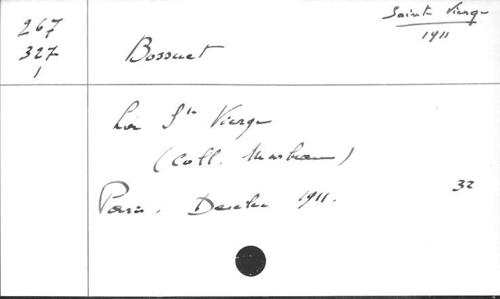 267
327
1
Sainte Vierge
1911
Bossuet
La Ste Vierge
(Coll.
Paris. 1911.
32